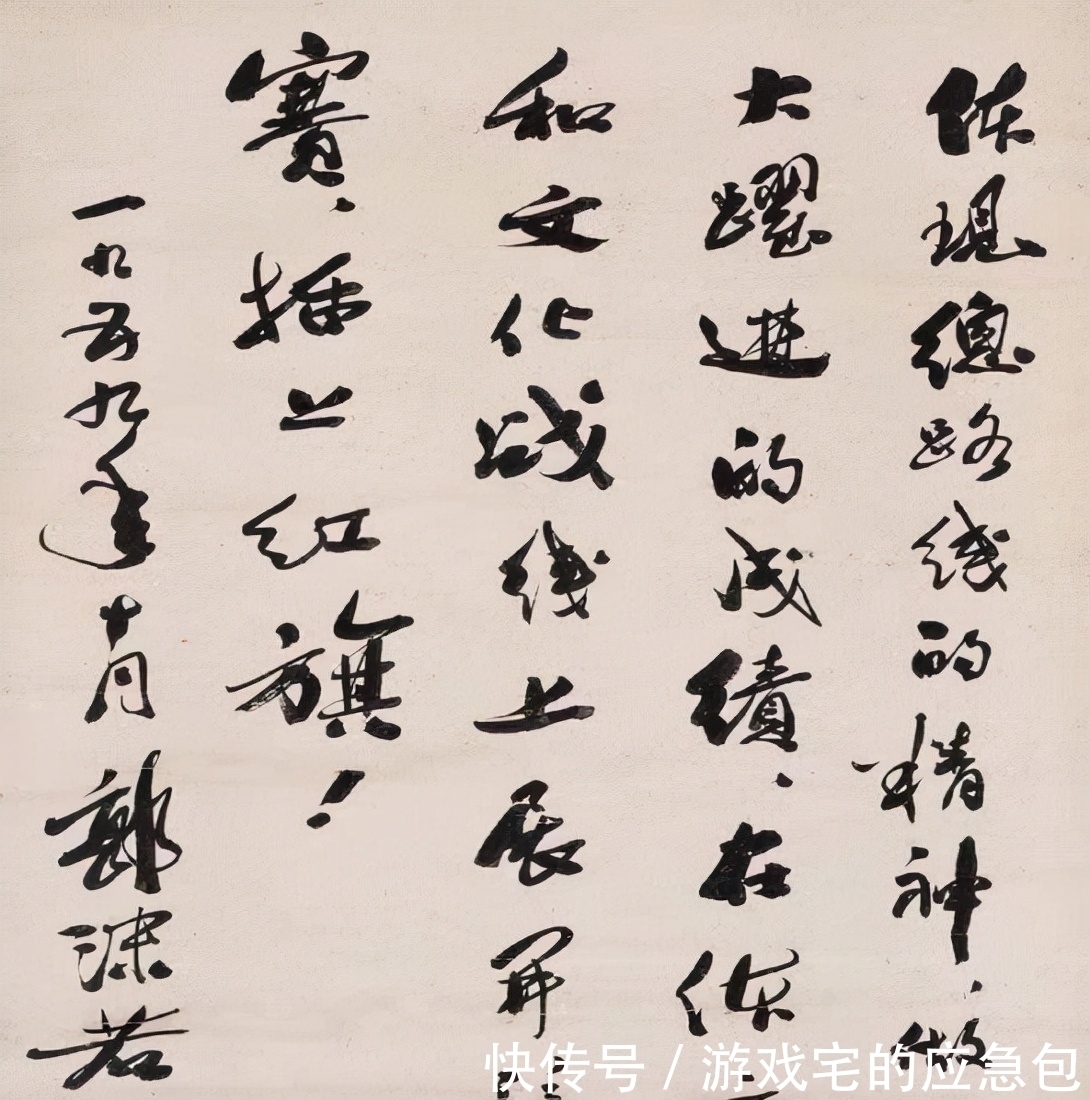 体现總路线的精神.做
大躍进的成绩.在体
和文化战线上展开
賽.插上红旗!
一九五九年十月郭沫若
快传号/游戏宅的应急包